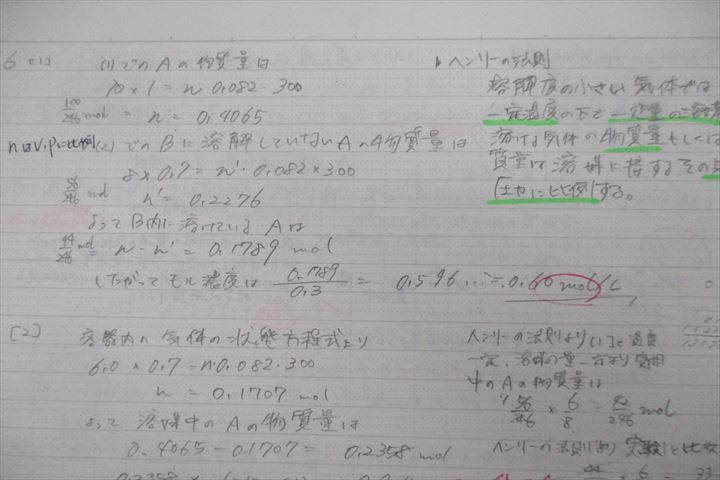 6 (1) (1)でのAの物質量は
10×1 = n 0.082・300
100/246 mol = n = 0.4065
nはV,Pに比例 (2)でのBに溶解していないAの物質量は
8×0.7 = n'・0.082×300
56/246 mol n' = 0.2276
よってB内に溶けているAは
44/246 mol = n - n' = 0.1789 mol
したがってモル濃度は 0.1789/0.3 = 0.596… ≒ 0.60 mol/L
[2] 容器内の気体の状態方程式より
6.0×0.7 = n・0.082・300
n = 0.1707 mol
よって溶媒中のAの物質量は
0.4065 - 0.1707 = 0.2358 mol
ヘンリーの法則
溶解度の小さい気体では
一定温度の下で一定量の
溶ける気体の物質量もしくは
質量は溶媒に接するその
圧力に比例する。
ヘンリーの法則より[1]と温度
一定、溶媒の量一定より気相
中のAの物質量は
56/246 × 6/8 = 42/246 mol
ヘンリーの法則より実験1と比較